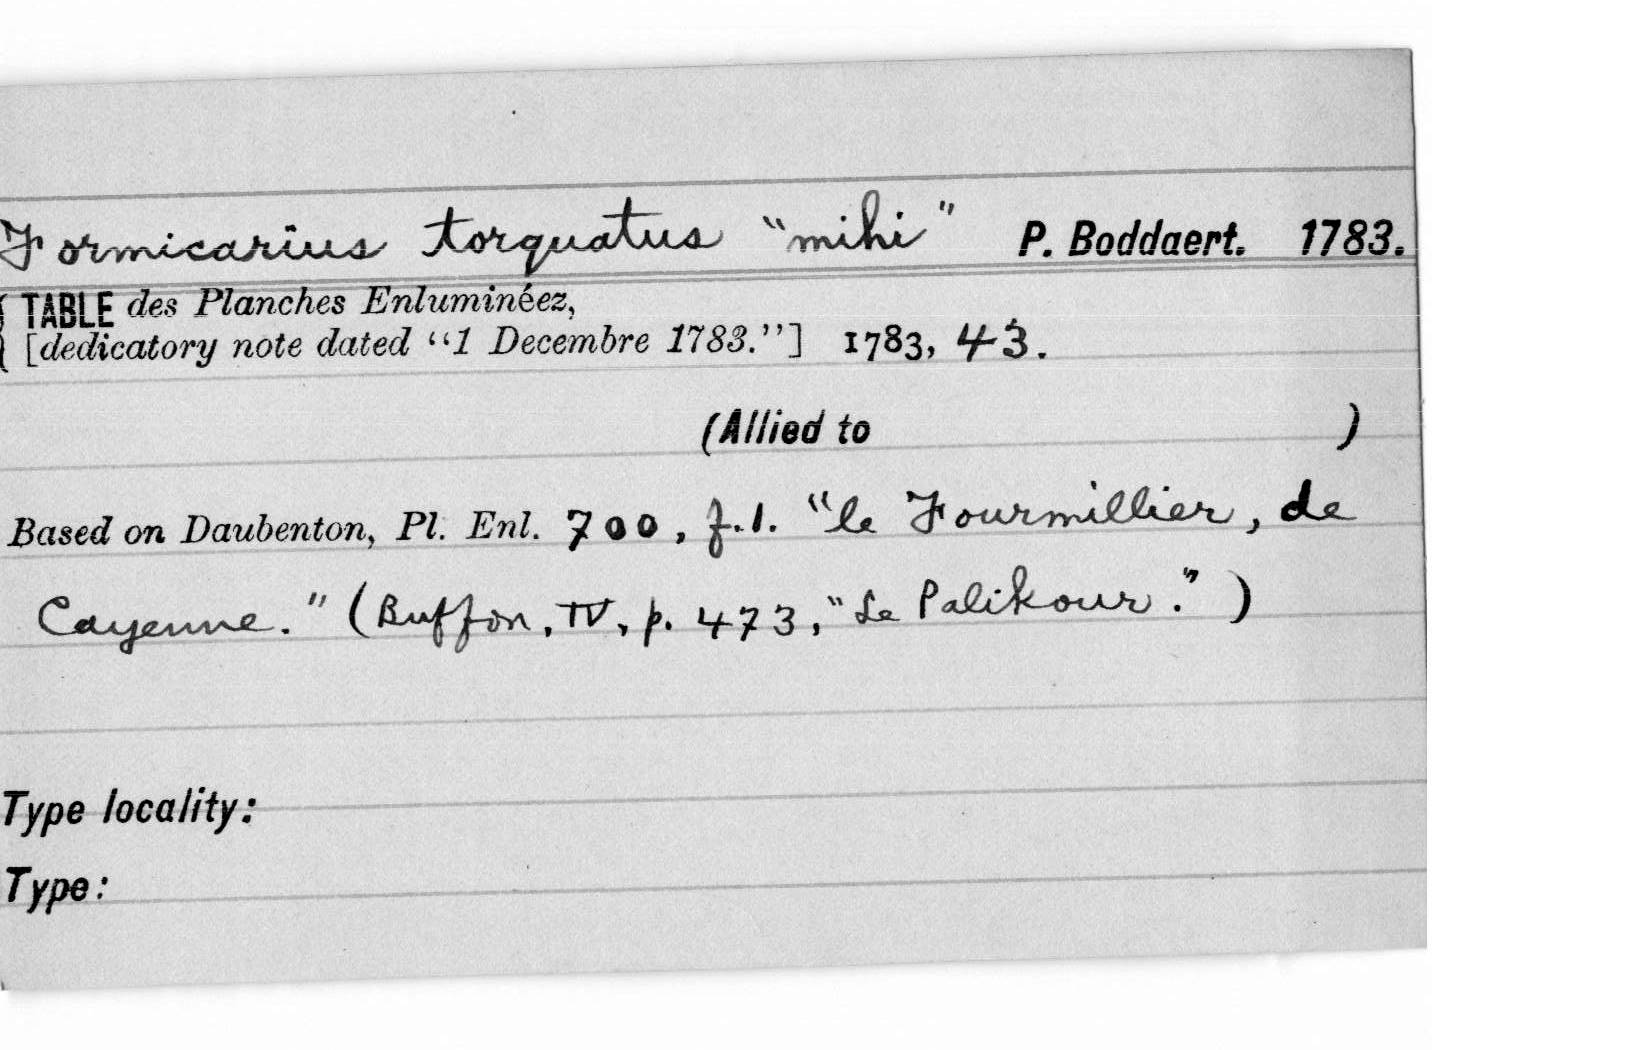 Formicarius torquatus "mihi" P. Boddaert. 1783.
TABLE des Planches Enluminéez,
[dedicatory note dated "1 Decembre 1783."] 1783, 43.
(Allied to )
Based on Daubenton, Pl. Enl. 700, f.1. "le Fourmillier, de
Cayenne." (Buffon, IV, p. 473, "Le Palikour.")
Type locality:
Type: